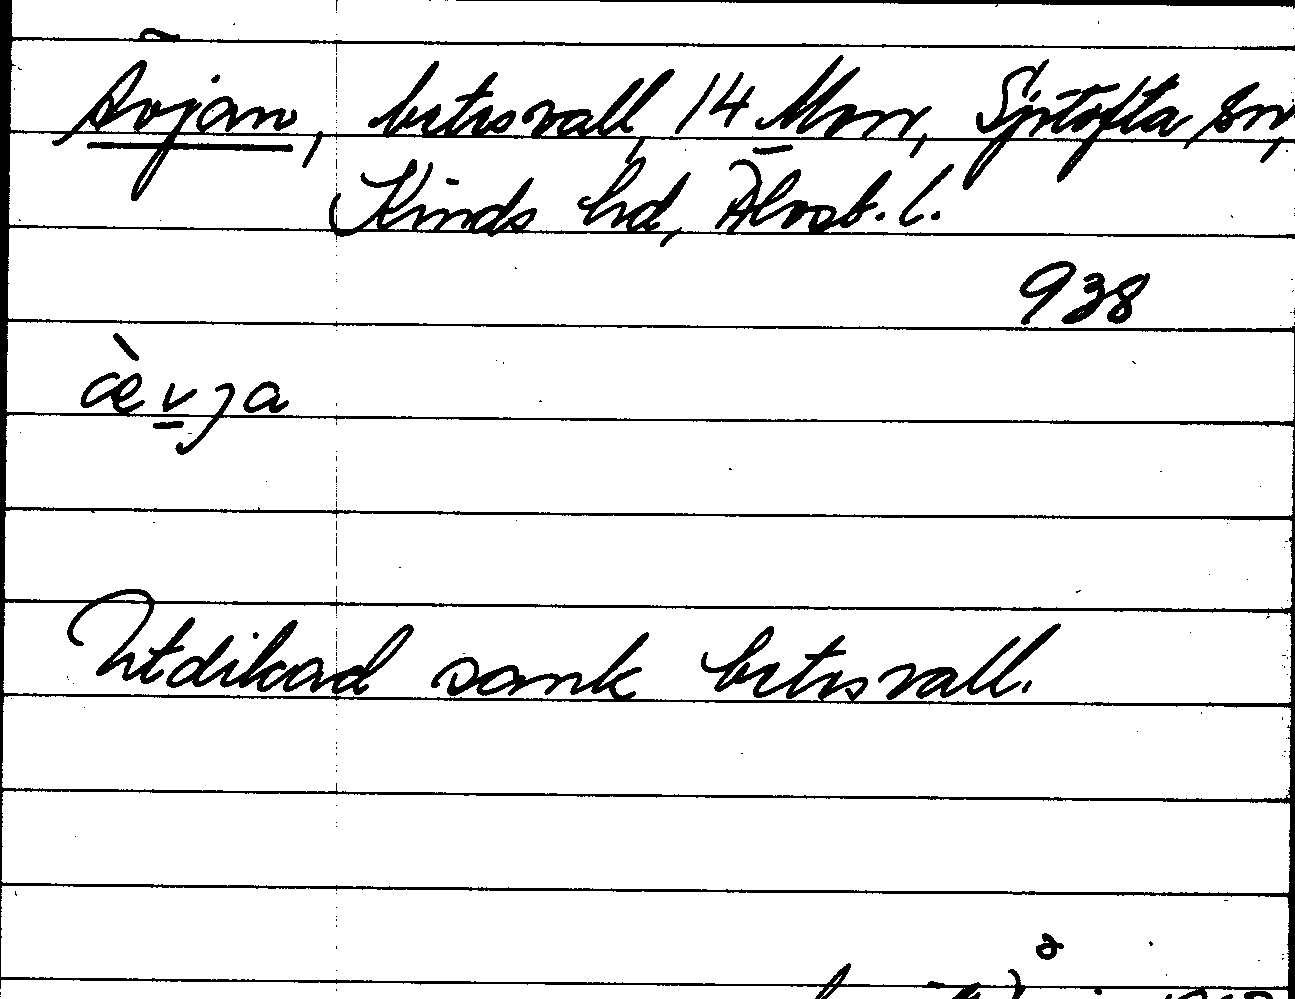 Ävjan, betesvall, 14 Mon, Sjötofta sn,
Kinds hd, Älvsb. l.
938
ævja
Utdikad sank betesvall.